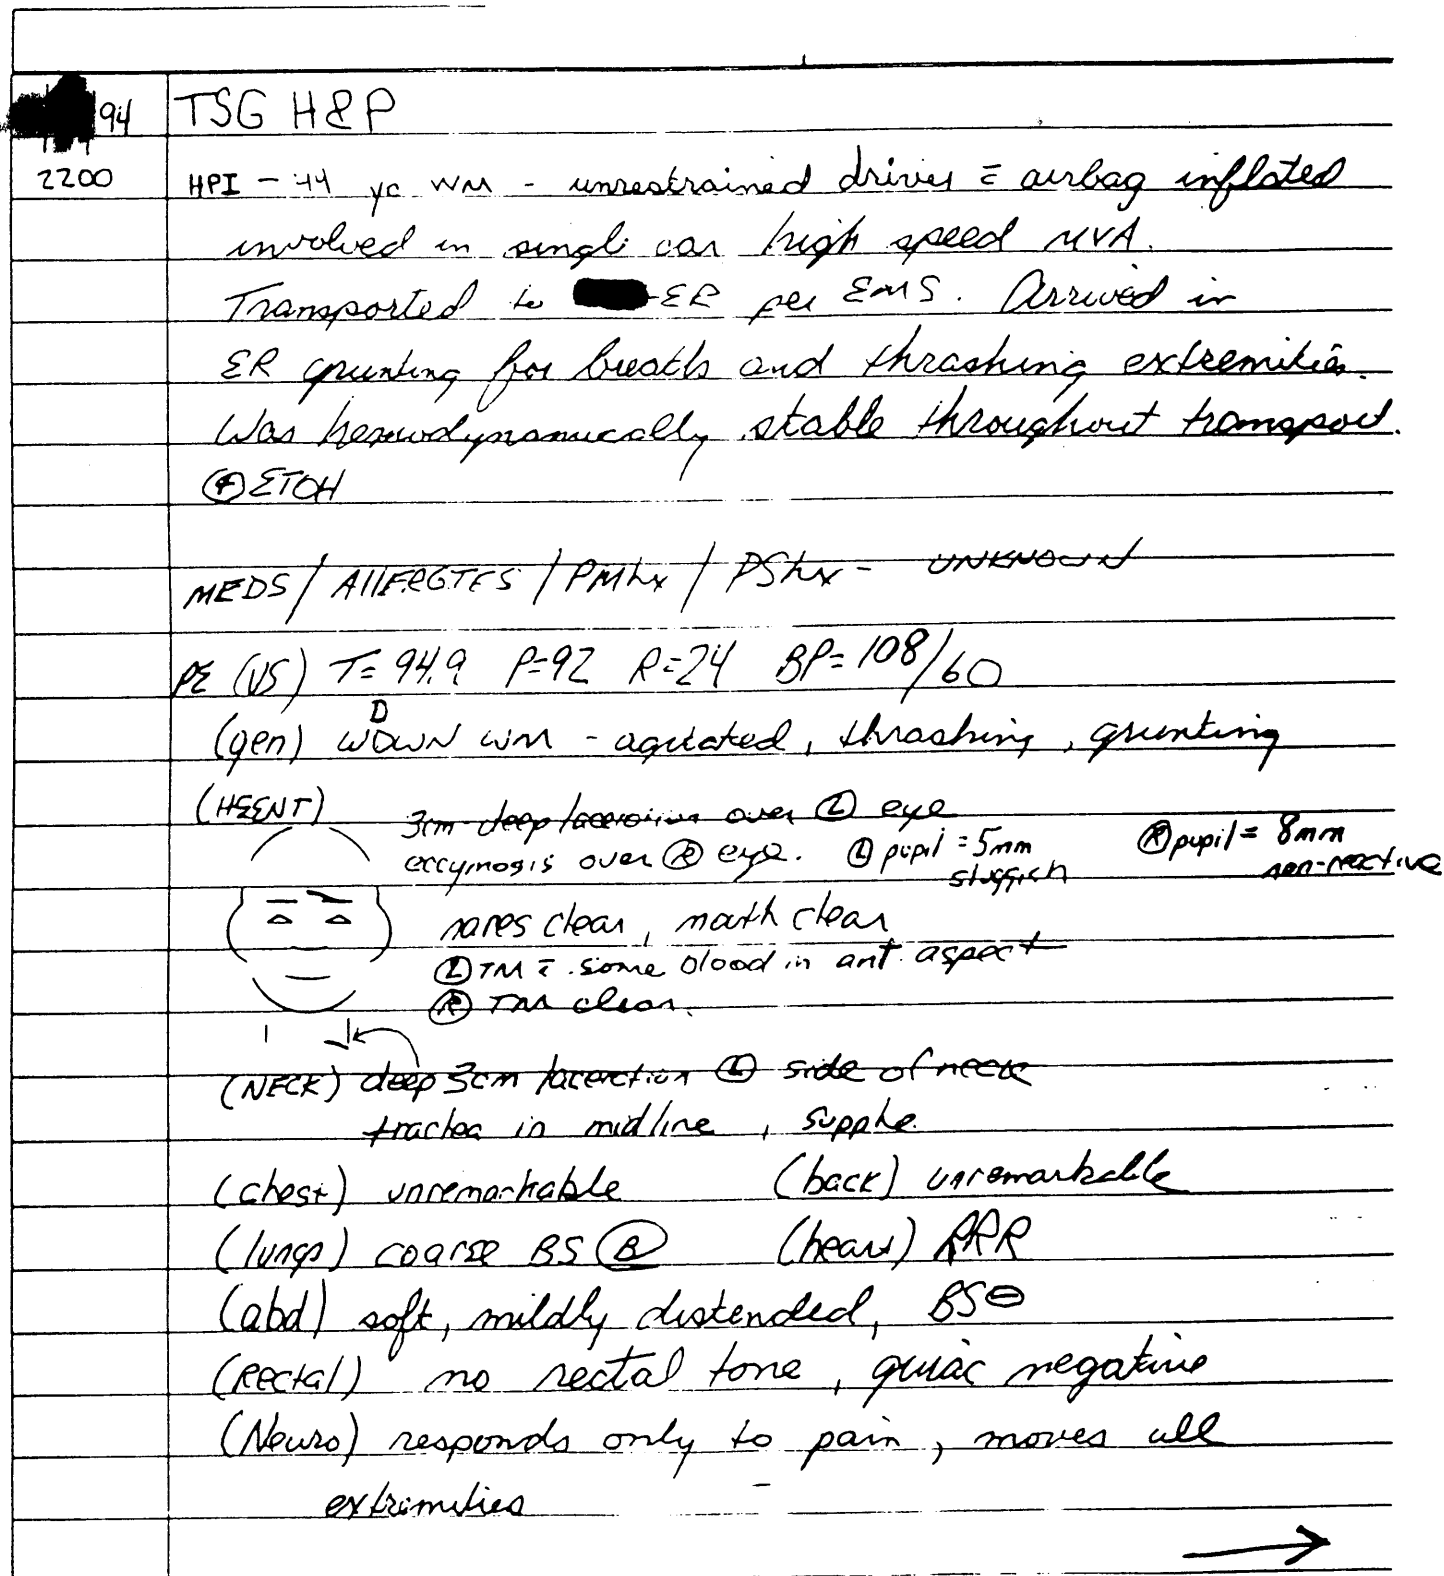 94 TSG H&P
2200 HPI - 44 yo WM - unrestrained driver c̄ airbag inflated
involved in single car high speed MVA.
Transported to ER per EMS. Arrived in
ER grunting for breath and thrashing extremities.
Was hemodynamically stable throughout transport.
⊕ ETOH
MEDS / AllERGIES / PMhx / PShx - UNKNOWN
PE (VS) T= 94.9 P=92 R=24 BP= 108/60
D
(gen) WDWN WM - agitated, thrashing, grunting
(HEENT) 3cm deep laceration over Ⓛ eye
eccymosis over Ⓡ eye. Ⓛ pupil = 5mm sluggish Ⓡ pupil = 8mm non-reactive
nares clear, mouth clear
Ⓛ TM c̄ some blood in ant. aspect
Ⓡ TM clear.
(NECK) deep 3cm laceration Ⓛ side of neck
trachea in midline, supple.
(chest) unremarkable (back) unremarkable
(lungs) coarse BS Ⓑ (heart) RRR
(abd) soft, mildly distended, BS⊖
(Rectal) no rectal tone, guiac negative
(Neuro) responds only to pain, moves all
extremities
→